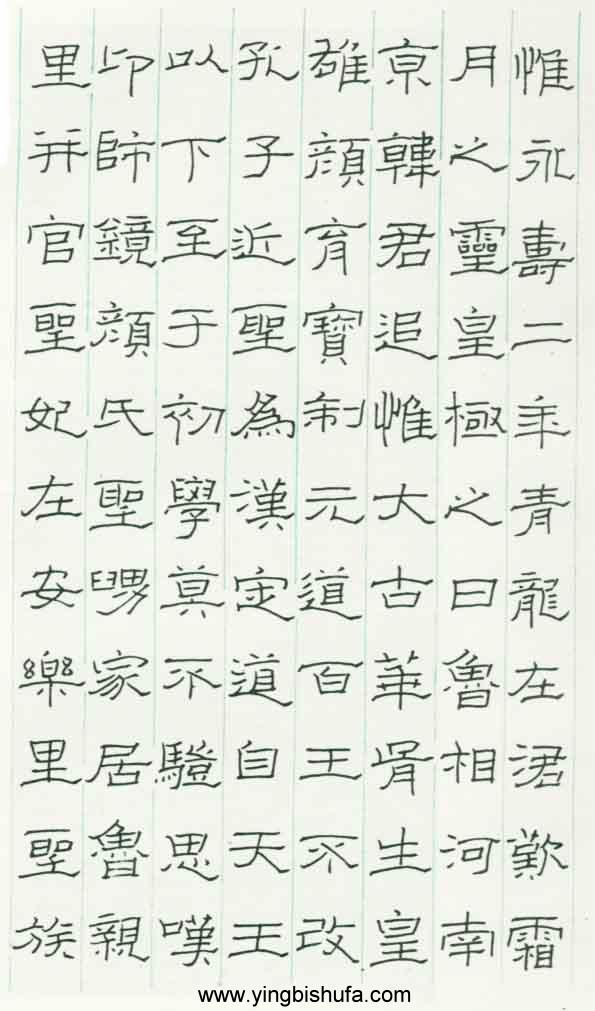 惟永壽二年青龍在涒歎霜
月之靈皇極之日魯相河南
京韓君追惟大古華胥生皇
雄顏育寶制元道百王不改
孔子近聖為漢定道自天王
以下至于初學莫不驥思嘆
卬師鏡顏氏聖舅家居魯親
里并官聖妃在安樂里聖族
www.yingbishufa.com